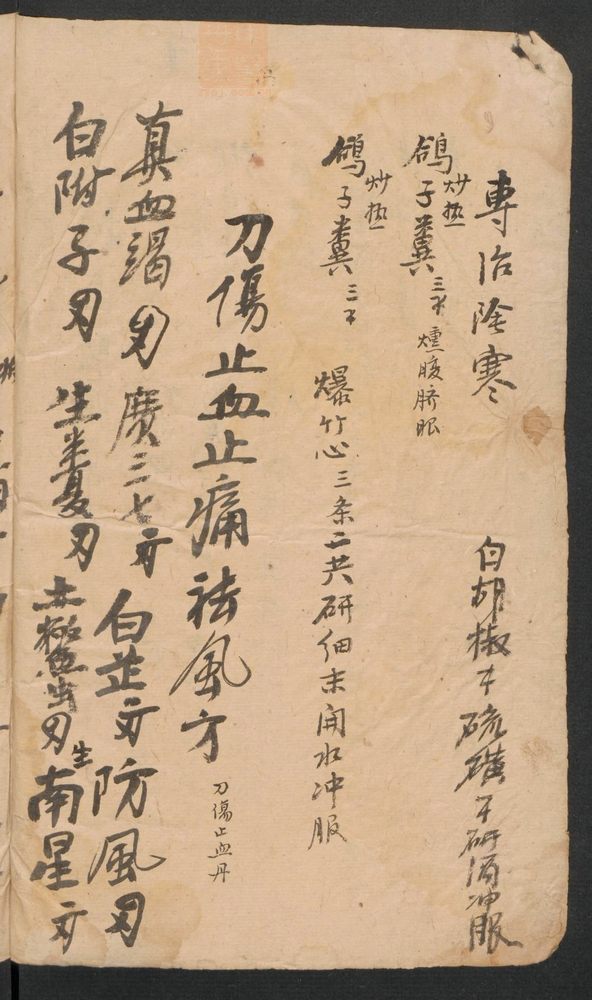 專治陰寒 白胡椒 硫磺 研酒冲服
鴿子糞炒热三 燻腹脐眼
鴿子糞炒热三 爆竹心三条二共研细末開水冲服
刀傷止血止痛祛風方 刀傷止血丹
真血竭 廣三七 白芷 防風
白附子 生半夏 土鱉虫 生南星